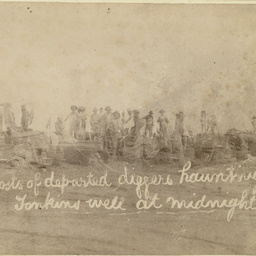 osts of departed diggers haunting
Tonkins well at midnight